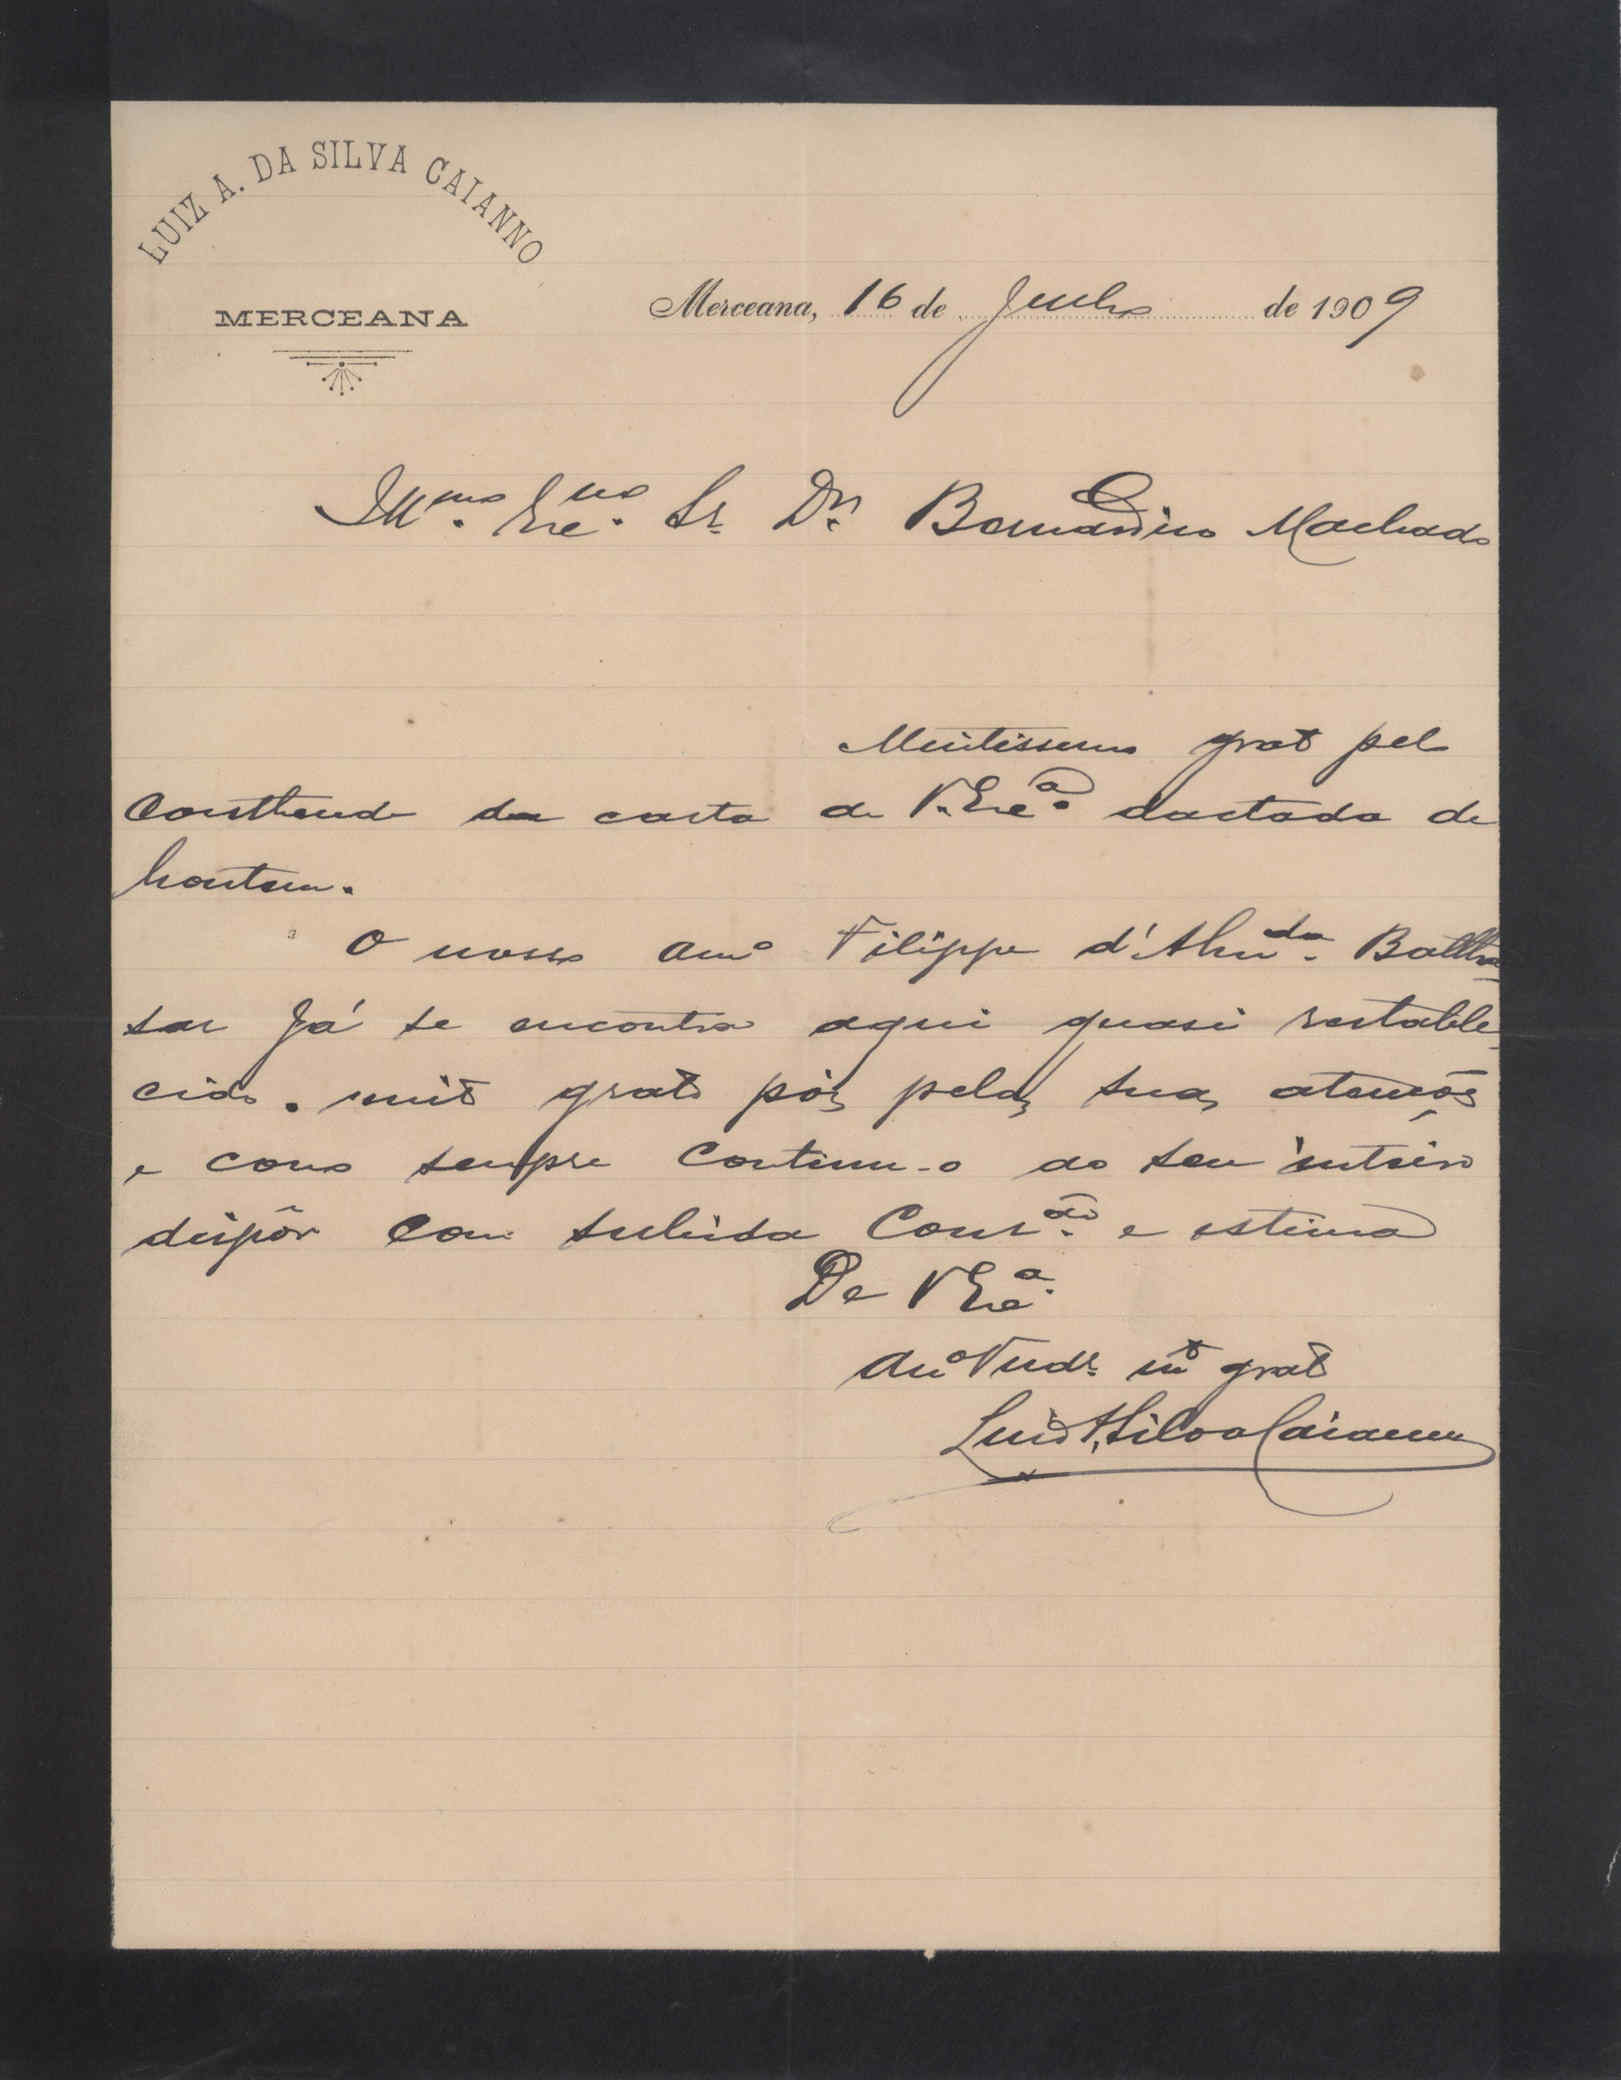 LUIZ A. DA SILVA CAIANNO
MERCEANA
Merceana, 16 de Julho de 1909
Illmo. Exmo. Sr. Dr. Bernardino Machado
Muitissimo grato pelo
conthendo da carta de V. Exca. dactada de
hontem.
O nosso amo Filippe d'Almda. Baltha
sar já se encontra aqui quasi restable
cido. muito grato pois pelas suas atenções
e como sempre continu-o ao seu inteiro
dispôr com subida Consão. e estima
De V Exca.
Amo Vendr mto grato
Luiz A. Silva Caianno